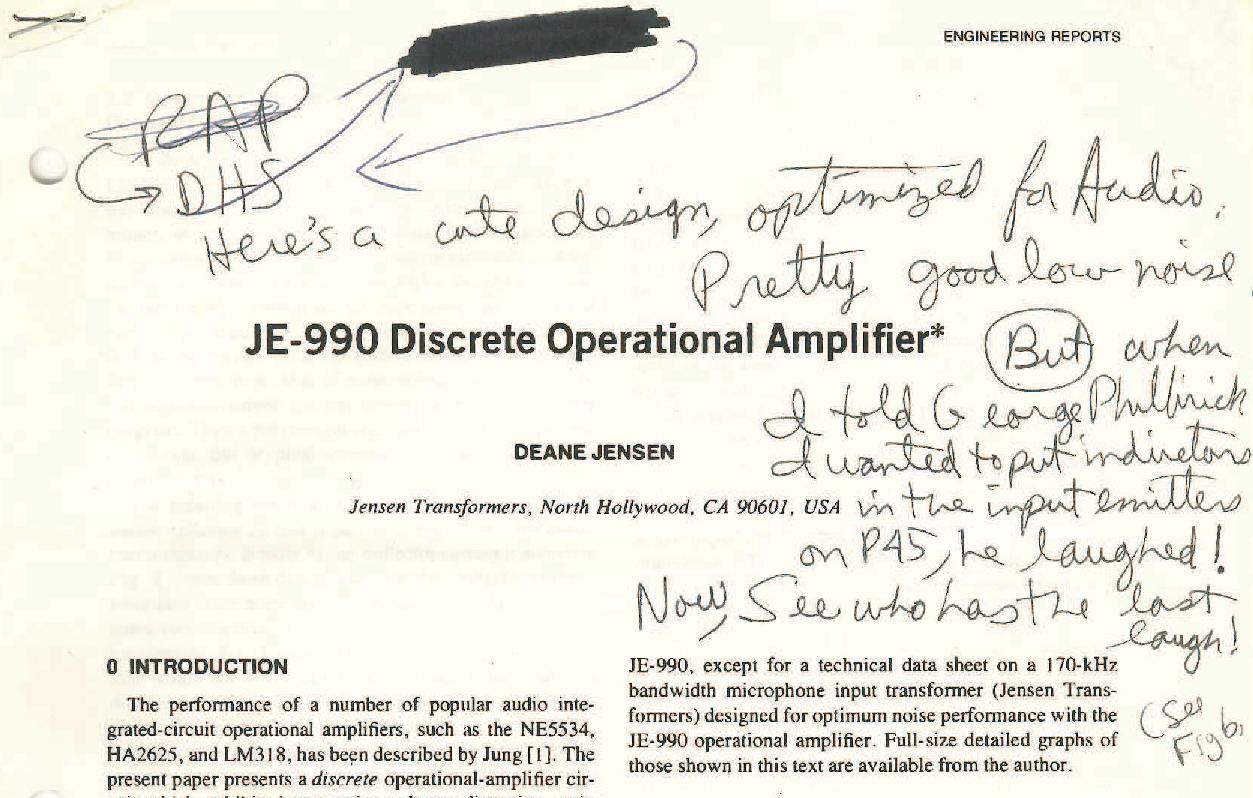 ENGINEERING REPORTS
RAP
DHS
Here's a cute design, optimized for Audio.
Pretty good low noise.
JE-990 Discrete Operational Amplifier*
But when
I told George Philbrick
I wanted to put inductors
in the input emitters
on P45, he laughed!
Now, See who has the last
laugh!
(See
Fig 6)
DEANE JENSEN
Jensen Transformers, North Hollywood, CA 90601, USA
0 INTRODUCTION
The performance of a number of popular audio inte-
grated-circuit operational amplifiers, such as the NE5534,
HA2625, and LM318, has been described by Jung [1]. The
present paper presents a discrete operational-amplifier cir-
JE-990, except for a technical data sheet on a 170-kHz
bandwidth microphone input transformer (Jensen Trans-
formers) designed for optimum noise performance with the
JE-990 operational amplifier. Full-size detailed graphs of
those shown in this text are available from the author.